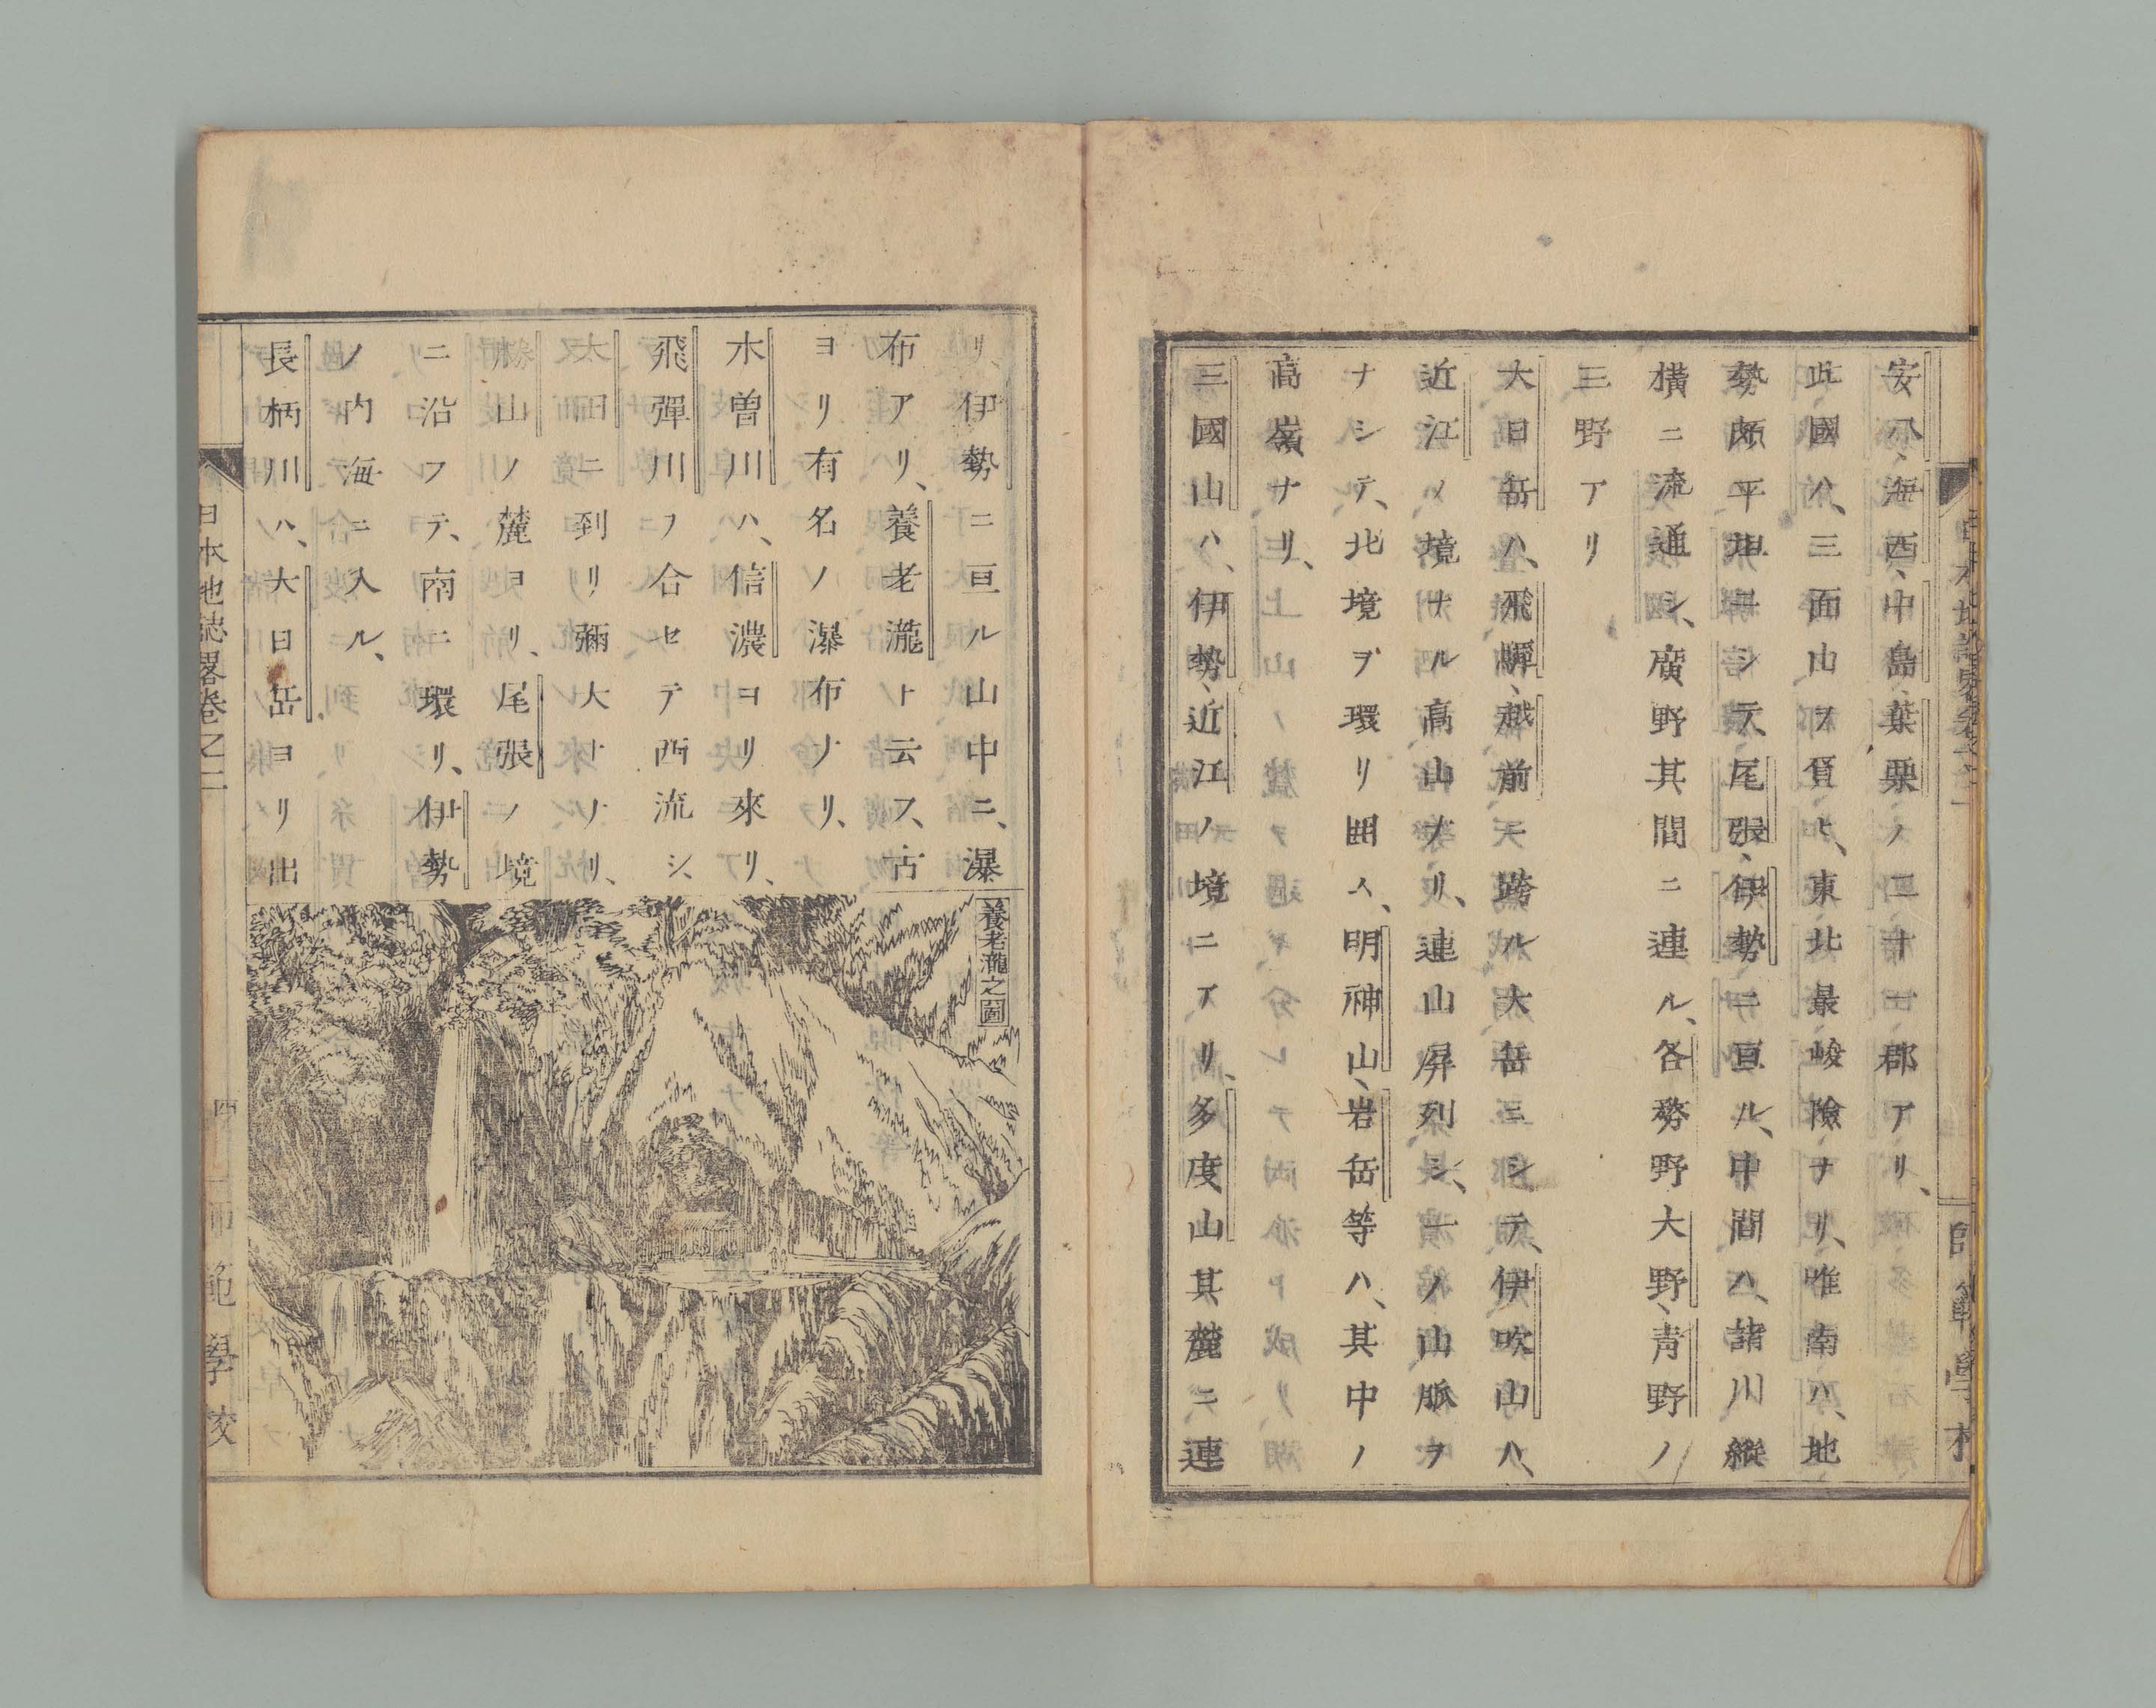 安八、海西、中島、葉栗ノ二十一郡アリ、
此國ハ、三面山ヲ負ヒ、東北最峻險ナリ、唯南ハ、地
勢頗平坦ニシテ、尾張、伊勢ニ亘ル、中間ハ、諸川縱
橫ニ流通シ、廣野其間ニ連ル、各務野大野、青野ノ
三野アリ
大日岳ハ、飛驒、越前ニ跨ル大岳ニシテ、伊吹山ハ、
近江ノ境ナル高山ナリ、連山屏列シ、一ノ山脈ヲ
ナシテ、北境ヲ環リ囲ム、明神山、岩岳等ハ、其中ノ
高嶺ナリ、
三國山ハ、伊勢、近江ノ境ニアリ、多度山其麓ニ連
リ、伊勢ニ亘ル山中ニ、瀑
布アリ、養老瀧ト云フ、古
ヨリ有名ノ瀑布ナリ、
木曽川ハ、信濃ヨリ來リ、
飛彈川ヲ合セテ西流シ、
太田ニ到リ彌大ナリ、
山ノ麓ヨリ、尾張ノ境
ニ沿フテ、南ニ環リ、伊勢
ノ内海ニ入ル、
長柄川ハ、大日岳ヨリ出
養老瀧之圖
日本地誌畧卷之二
四
師範學校